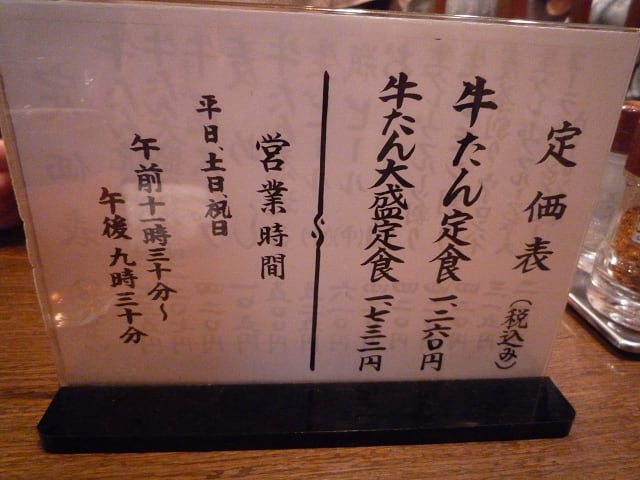 定価表
(税込み)
牛たん定食 一、二六〇円
牛たん大盛定食 一、七三三円
営業時間
平日、土日、祝日
午前十一時三十分〜
午後九時三十分